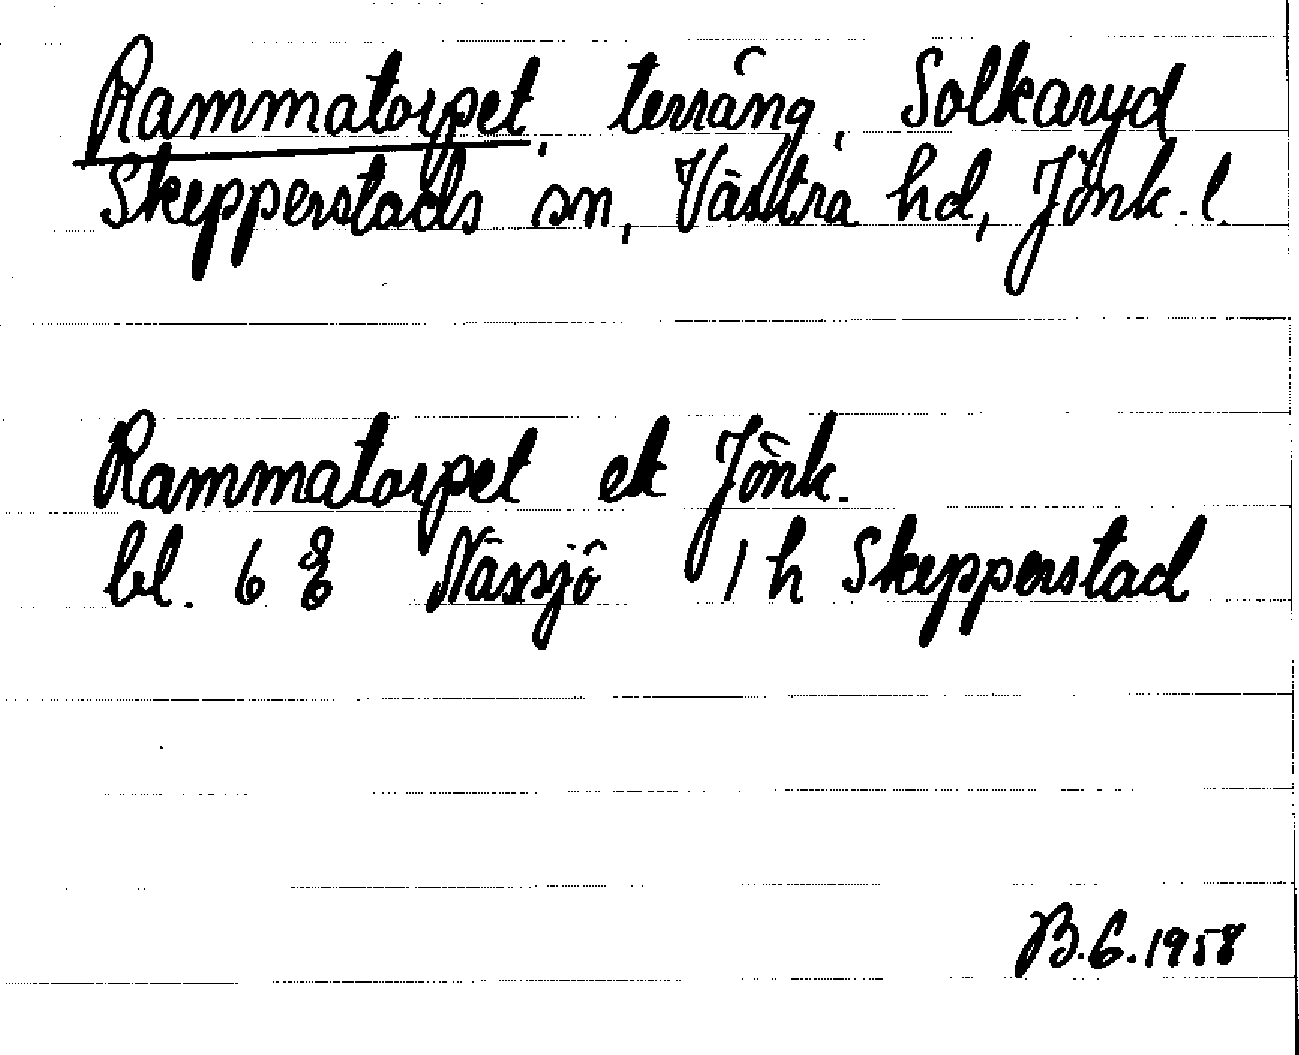 Rammatorpet, terräng, Solkaryd
Skepperstads sn, Västra hd, Jönk. l.
Rammatorpet ek Jönk.
bl. 6 E Nässjö 1 h Skepperstad
B.G. 1958